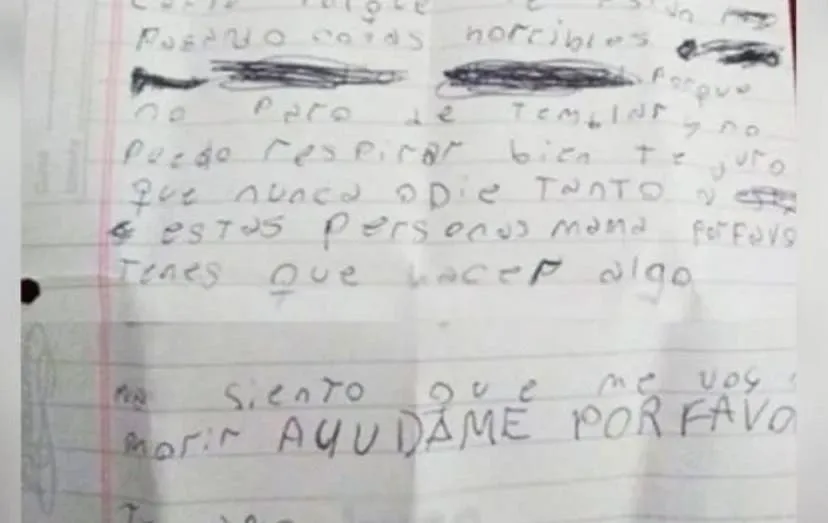 pasando cosas horribles
porque
no paro de temblar y no
puedo respirar bien te juro
que nunca odie tanto a
estas personas mama porfavo
tenes que hacer algo
siento que me voy
morir AYUDAME POR FAVO